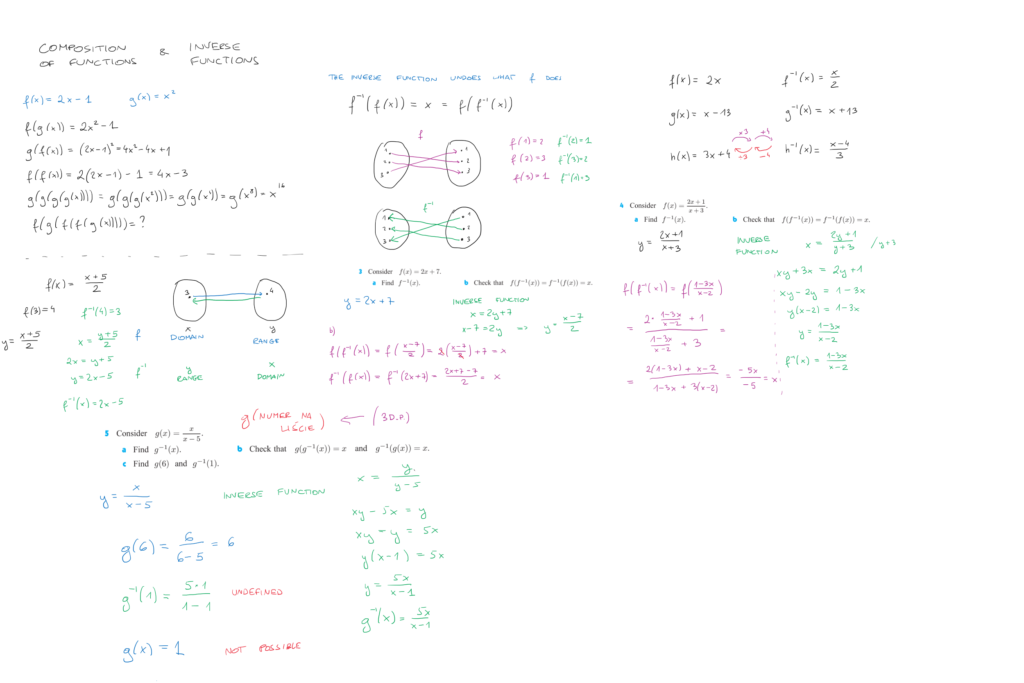 COMPOSITION OF FUNCTIONS & INVERSE FUNCTIONS
f(x) = 2x - 1    g(x) = x²
f(g(x)) = 2x² - 1
g(f(x)) = (2x-1)² = 4x² - 4x + 1
f(f(x)) = 2(2x-1) - 1 = 4x - 3
g(g(g(g(x)))) = g(g(g(x²))) = g(g(x⁴)) = g(x⁸) = x¹⁶
f(g(f(f(g(x))))) = ?
f(x) = (x+5)/2
f(3) = 4    f⁻¹(4) = 3
y = (x+5)/2
x = (y+5)/2    f
2x = y + 5
y = 2x - 5    f⁻¹
f⁻¹(x) = 2x - 5
3    4
x    y
DOMAIN    RANGE
y    x
RANGE    DOMAIN
THE INVERSE FUNCTION UNDOES WHAT f DOES
f⁻¹(f(x)) = x = f(f⁻¹(x))
f
1    1
2    2
3    3
f(1) = 2    f⁻¹(2) = 1
f(2) = 3    f⁻¹(3) = 2
f(3) = 1    f⁻¹(1) = 3
f⁻¹
1    1
2    2
3    3
3 Consider f(x) = 2x + 7.
a Find f⁻¹(x).    b Check that f(f⁻¹(x)) = f⁻¹(f(x)) = x.
y = 2x + 7
INVERSE FUNCTION
x = 2y + 7
x - 7 = 2y => y = (x-7)/2
b)
f(f⁻¹(x)) = f((x-7)/2) = 2((x-7)/2) + 7 = x
f⁻¹(f(x)) = f⁻¹(2x+7) = (2x+7-7)/2 = x
g(NUMER NA LIŚCIE) ← (3 D.P.)
f(x) = 2x    f⁻¹(x) = x/2
g(x) = x - 13    g⁻¹(x) = x + 13
+3    +4
h(x) = 3x + 4    h⁻¹(x) = (x-4)/3
-3    -4
4 Consider f(x) = (2x+1)/(x+3).
a Find f⁻¹(x).    b Check that f(f⁻¹(x)) = f⁻¹(f(x)) = x.
y = (2x+1)/(x+3)
INVERSE FUNCTION
x = (2y+1)/(y+3)    / y+3
xy + 3x = 2y + 1
xy - 2y = 1 - 3x
y(x-2) = 1 - 3x
y = (1-3x)/(x-2)
f⁻¹(x) = (1-3x)/(x-2)
f(f⁻¹(x)) = f((1-3x)/(x-2))
= (2·(1-3x)/(x-2) + 1)/((1-3x)/(x-2) + 3) =
= (2(1-3x) + x-2)/(1-3x + 3(x-2)) = -5x/-5 = x
5 Consider g(x) = x/(x-5).
a Find g⁻¹(x).    b Check that g(g⁻¹(x)) = x and g⁻¹(g(x)) = x.
c Find g(6) and g⁻¹(1).
y = x/(x-5)
INVERSE FUNCTION
x = y/(y-5)
xy - 5x = y
xy - y = 5x
y(x-1) = 5x
y = 5x/(x-1)
g⁻¹(x) = 5x/(x-1)
g(6) = 6/(6-5) = 6
g⁻¹(1) = (5·1)/(1-1)    UNDEFINED
g(x) = 1    NOT POSSIBLE